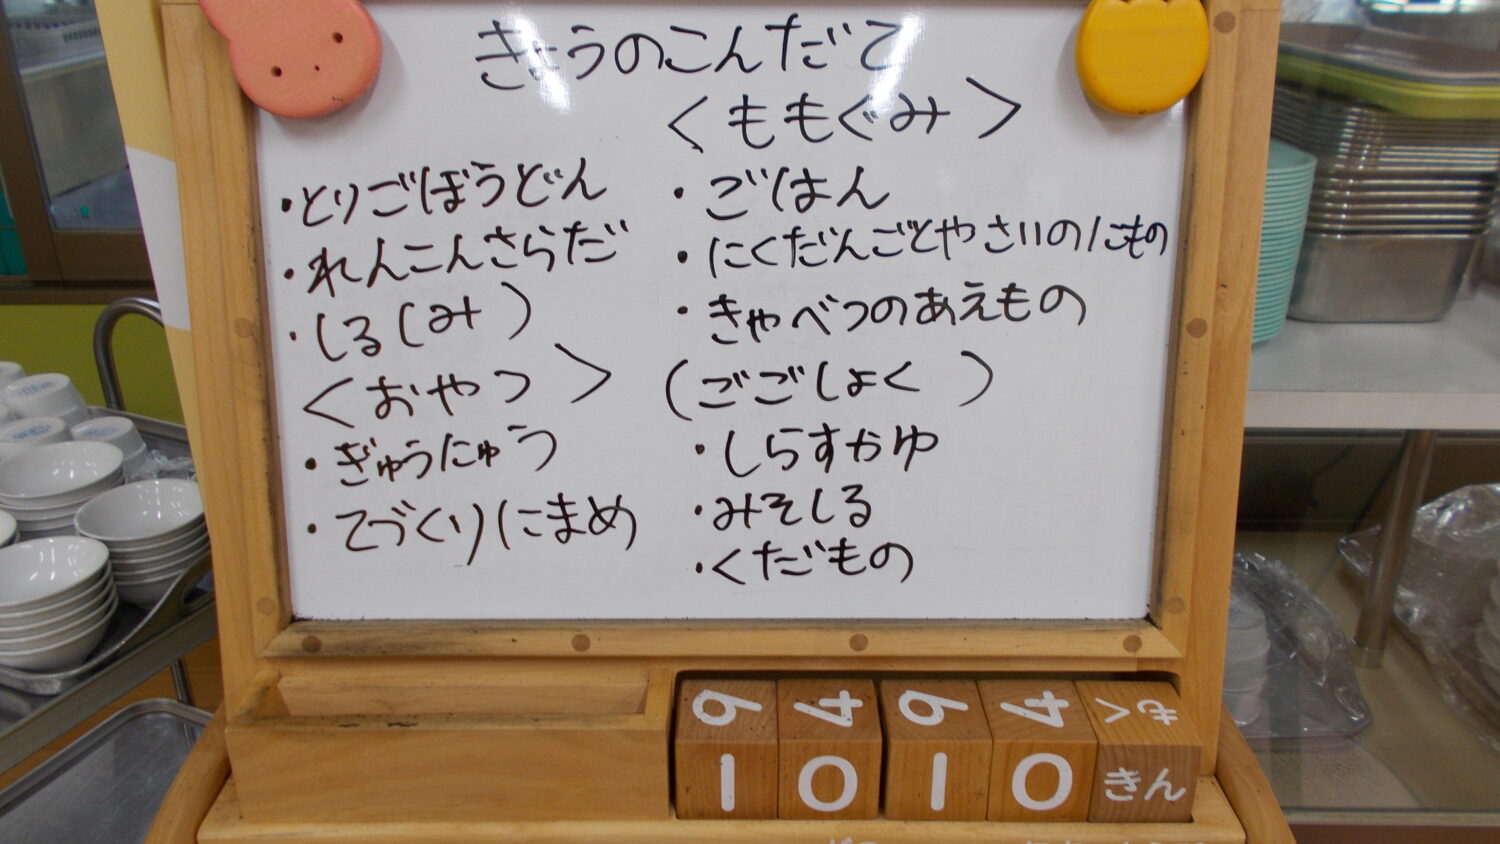 きょうのこんだて
・とりごぼうどん
・れんこんさらだ
・しる(しみ)
<おやつ>
・ぎゅうにゅう
・てづくりにまめ
<ももぐみ>
・ごはん
・にくだんごとやさいのにもの
・きゃべつのあえもの
(ごごしょく)
・しらすかゆ
・みそしる
・くだもの
9 4 9 4 もく
1 0 1 0 きん